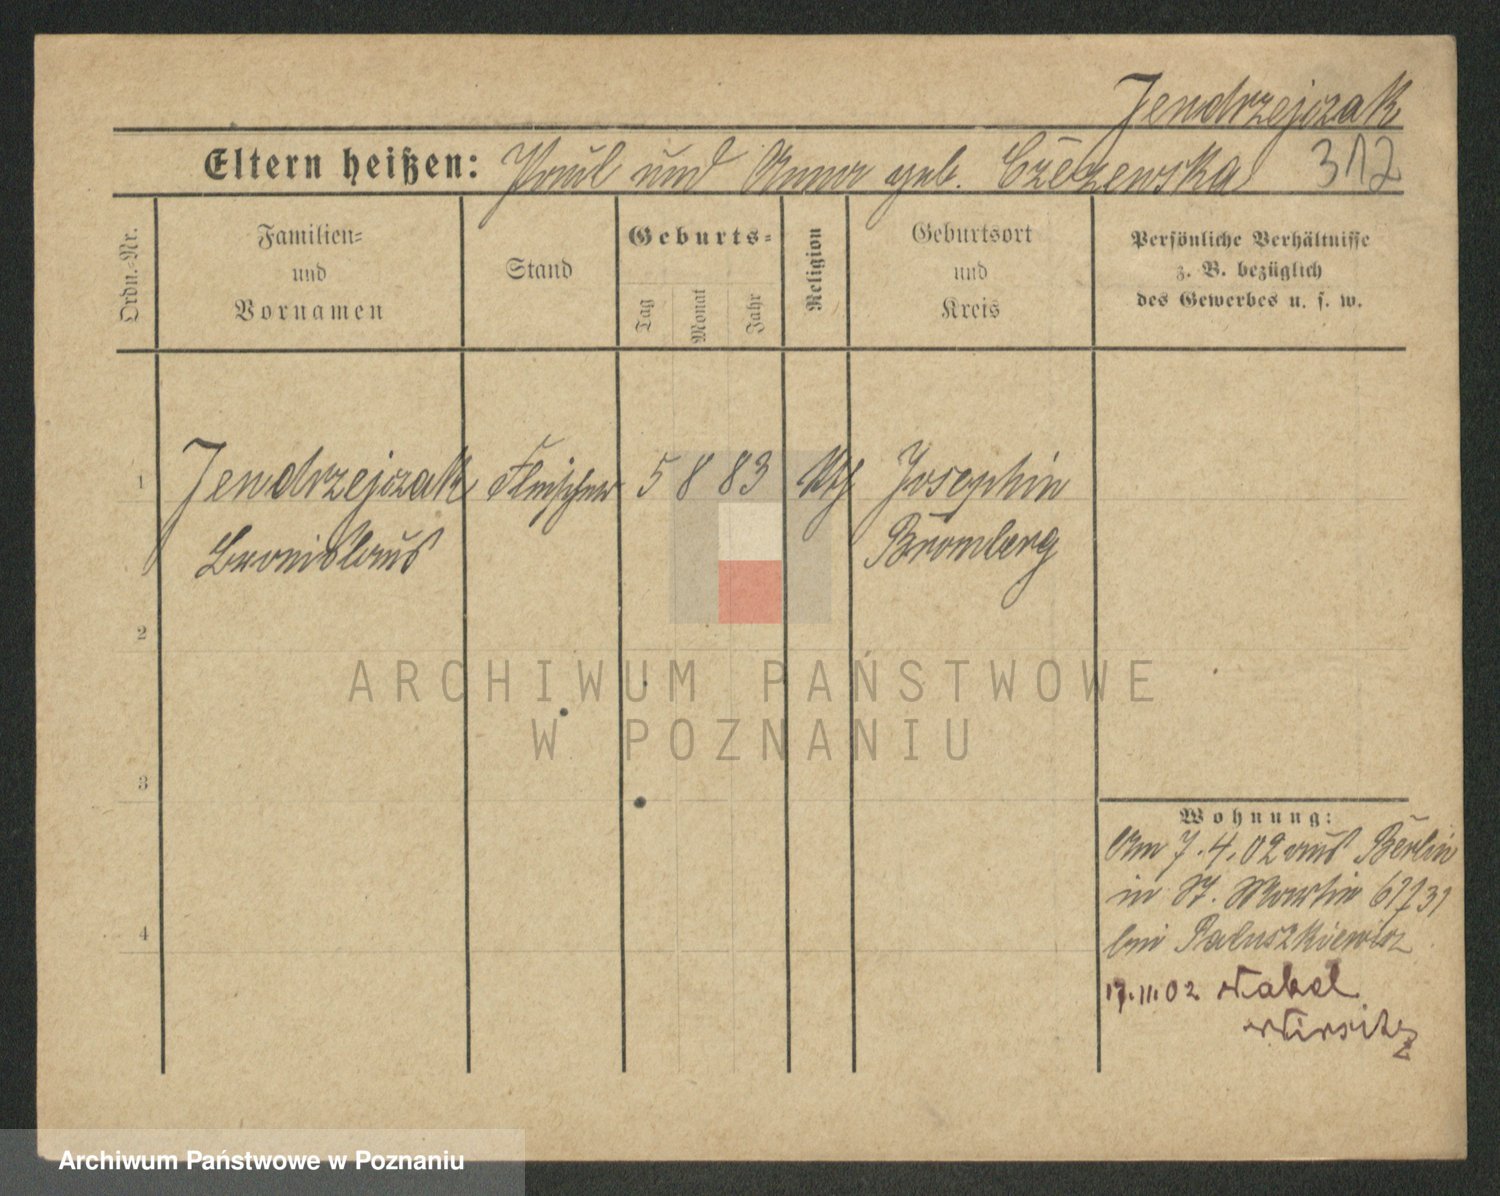 Jendrzejczak
Eltern heißen: Paul und Anna geb. Czeczewska 312
Ordn.-Nr.
Familien-
und
Vornamen
Stand
Geburts-
Tag
Monat
Jahr
Religion
Geburtsort
und
Kreis
Persönliche Verhältnisse
z. B. bezüglich
des Gewerbes u. s. w.
1 Jendrzejczak Fleischer 5 8 83 Kth Josephin
Bronislaus Bromberg
2
3
4
Wohnung:
Am 7.4.02 aus Berlin
in St. Martin
bei Paluszkiewicz
17.11.02 Nakel
Wirsitz
ARCHIWUM PAŃSTWOWE
W POZNANIU
Archiwum Państwowe w Poznaniu